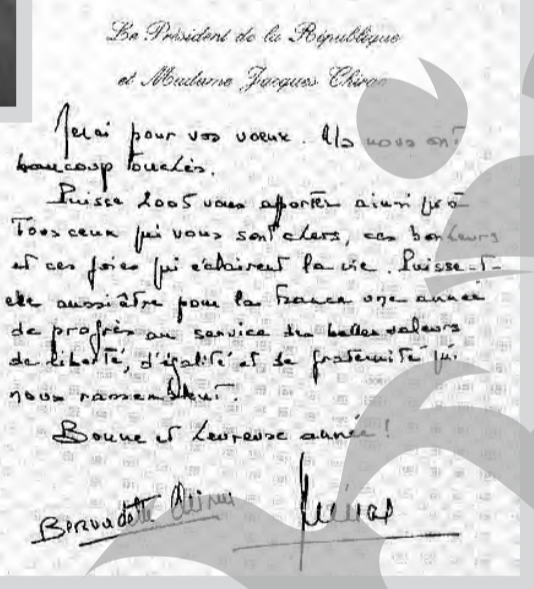 Le Président de la République
et Madame Jacques Chirac
Merci pour vos voeux. Ils nous ont
beaucoup touchés.
Puisse 2005 vous apporter ainsi qu'à
tous ceux qui vous sont chers, ces bonheurs
et ces joies qui éclairent la vie. Puisse-t-
elle aussi être pour la France une année
de progrès au service des belles valeurs
de liberté, d'égalité et de fraternité qui
nous rassemblent.
Bonne et heureuse année !
Bernadette Chirac